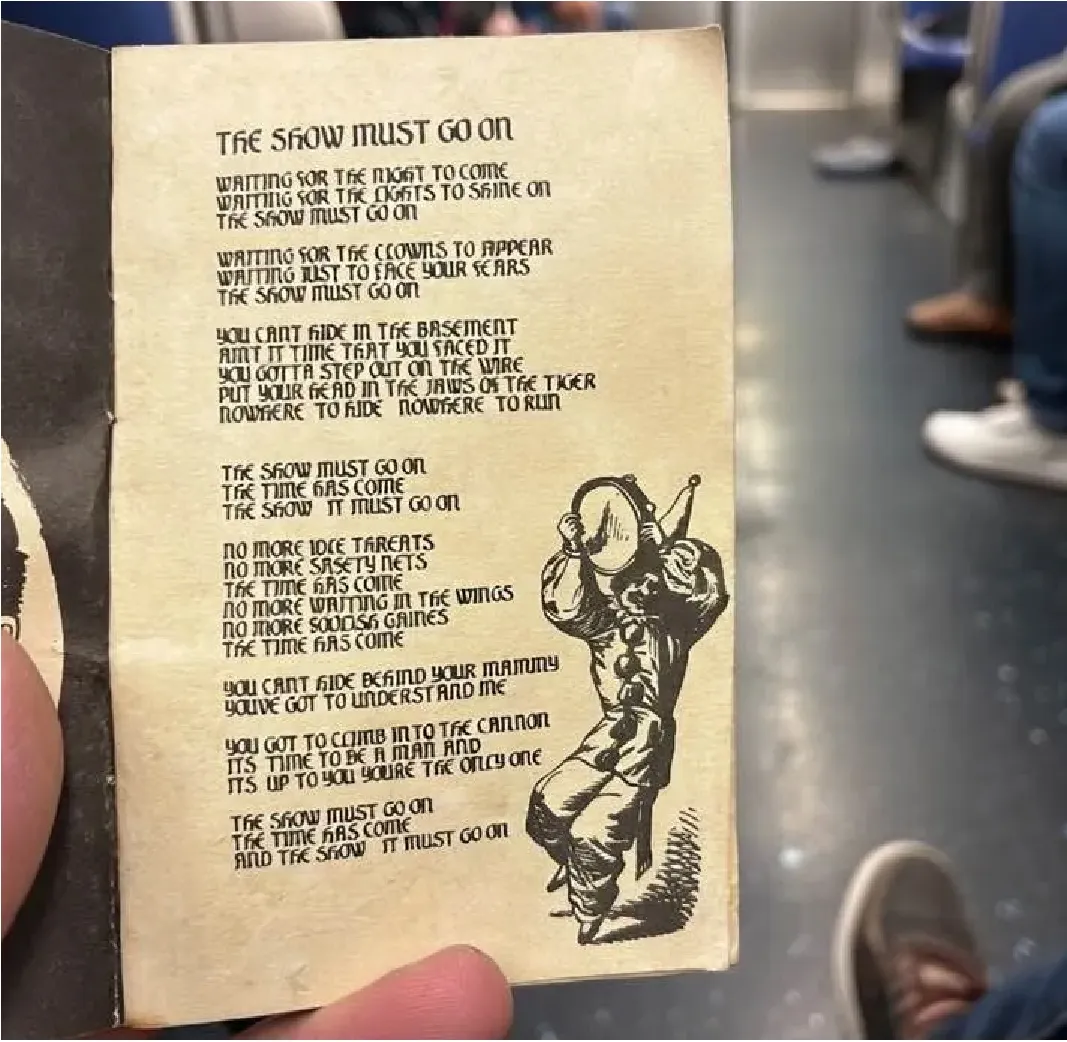 THE SHOW MUST GO ON
WAITING FOR THE NIGHT TO COME
WAITING FOR THE LIGHTS TO SHINE ON
THE SHOW MUST GO ON
WAITING FOR THE CLOWNS TO APPEAR
WAITING JUST TO FACE YOUR FEARS
THE SHOW MUST GO ON
YOU CANT HIDE IN THE BASEMENT
AINT IT TIME THAT YOU FACED IT
YOU GOTTA STEP OUT ON THE WIRE
PUT YOUR HEAD IN THE JAWS OF THE TIGER
NOWHERE TO HIDE NOWHERE TO RUN
THE SHOW MUST GO ON
THE TIME HAS COME
THE SHOW IT MUST GO ON
NO MORE IDLE THREATS
NO MORE SAFETY NETS
THE TIME HAS COME
NO MORE WAITING IN THE WINGS
NO MORE FOOLISH GAINES
THE TIME HAS COME
YOU CANT HIDE BEHIND YOUR MAMMY
YOUVE GOT TO UNDERSTAND ME
YOU GOT TO CLIMB INTO THE CANNON
ITS TIME TO BE A MAN AND
ITS UP TO YOU YOURE THE ONLY ONE
THE SHOW MUST GO ON
THE TIME HAS COME
AND THE SHOW IT MUST GO ON